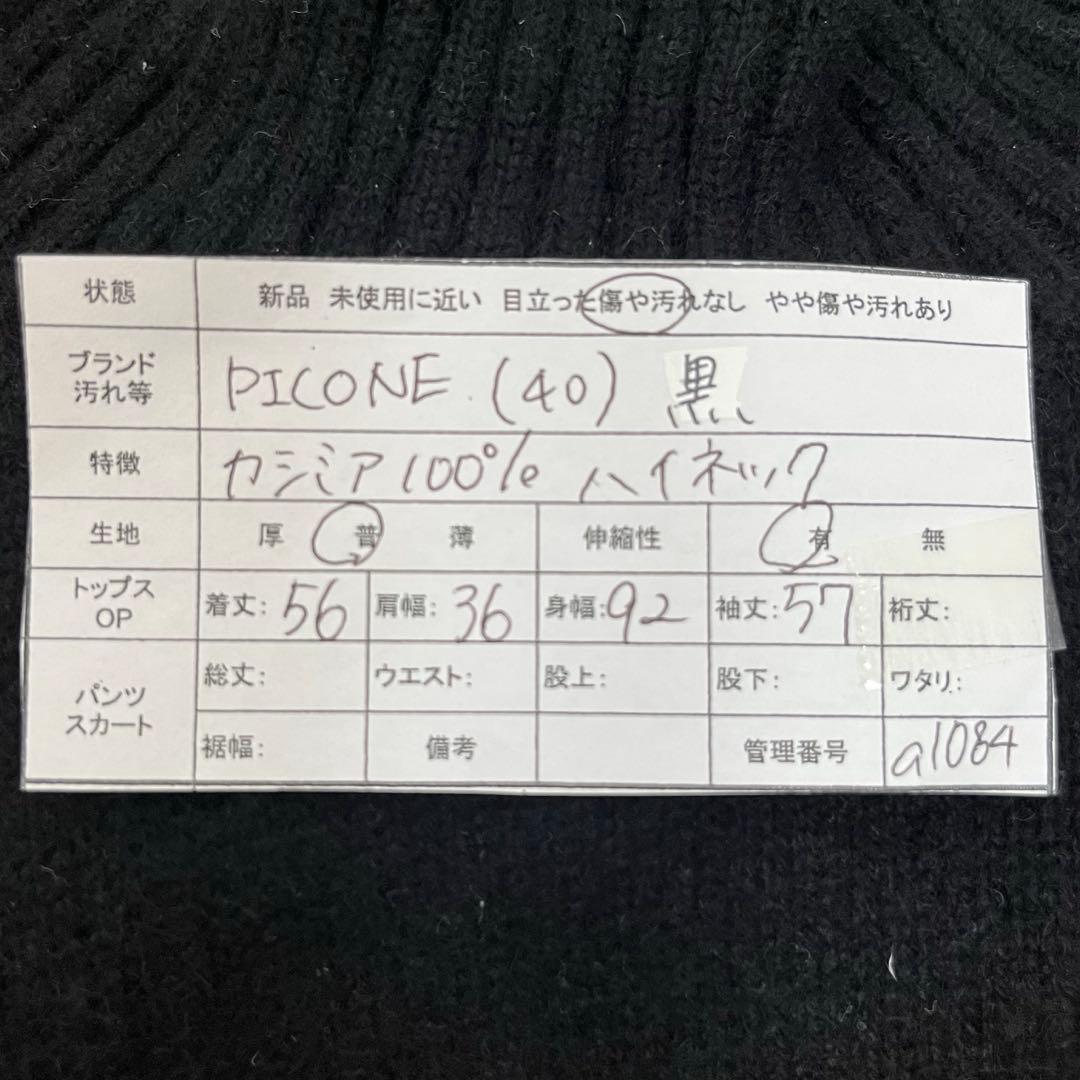 状態 新品 未使用に近い 目立った傷や汚れなし やや傷や汚れあり
ブランド
汚れ等
PICONE (40) 黒
特徴 カシミア100% ハイネック
生地 厚 普 薄 伸縮性 有 無
トップス
OP
着丈: 56 肩幅: 36 身幅: 92 袖丈: 57 裄丈:
パンツ
スカート
総丈: ウエスト: 股上: 股下: ワタリ:
裾幅: 備考 管理番号 a1084